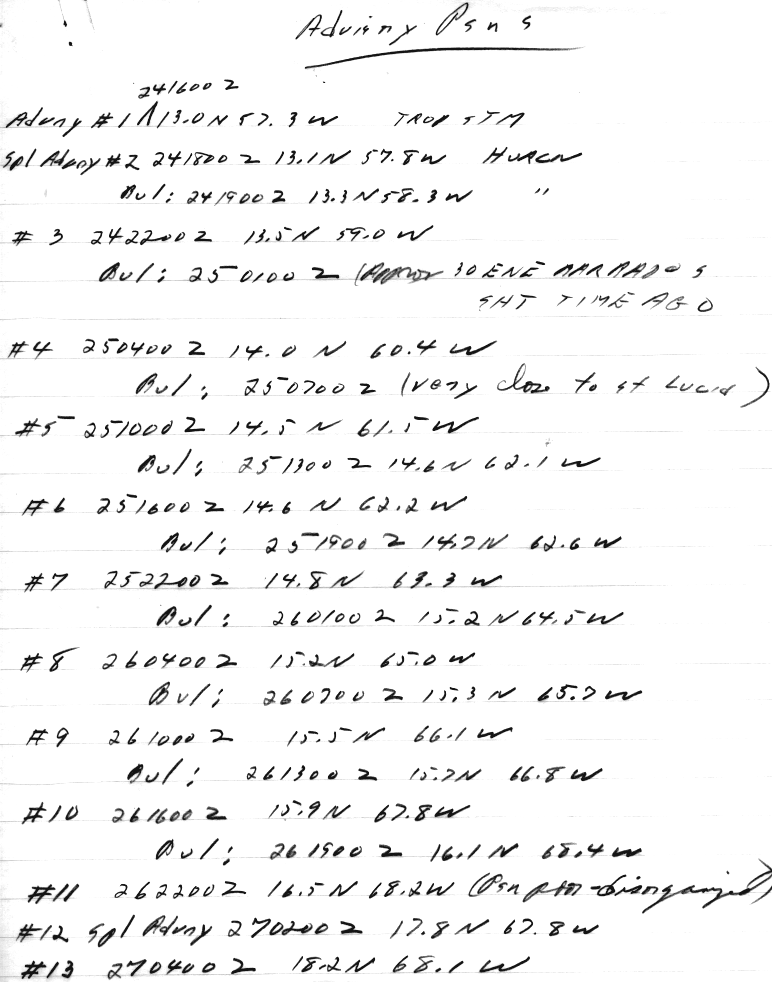 Advisory Psns
241600Z
Advsy #1 13.0N 57.3W TROP STM
Spl Advsy #2 241800Z 13.1N 57.8W HURCN
Bul: 241900Z 13.3N 58.3W "
#3 242200Z 13.5N 59.0W
Bul: 250100Z (Approx 30 ENE BARBADOS
SHT TIME AGO
#4 250400Z 14.0N 60.4W
Bul: 250700Z (very close to St Lucia)
#5 251000Z 14.5N 61.5W
Bul: 251300Z 14.6N 62.1W
#6 251600Z 14.6N 62.2W
Bul: 251900Z 14.7N 62.6W
#7 252200Z 14.8N 63.3W
Bul: 260100Z 15.2N 64.5W
#8 260400Z 15.2N 65.0W
Bul: 260700Z 15.3N 65.7W
#9 261000Z 15.5N 66.1W
Bul: 261300Z 15.7N 66.8W
#10 261600Z 15.9N 67.8W
Bul: 261900Z 16.1N 68.4W
#11 262200Z 16.5N 68.2W (Psn - disorganized)
#12 Spl Advsy 270200Z 17.8N 67.8W
#13 270400Z 18.2N 68.1W